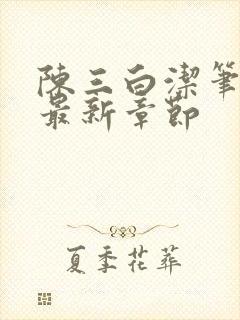 陳三白潔筆
最新章節
夏季花葬